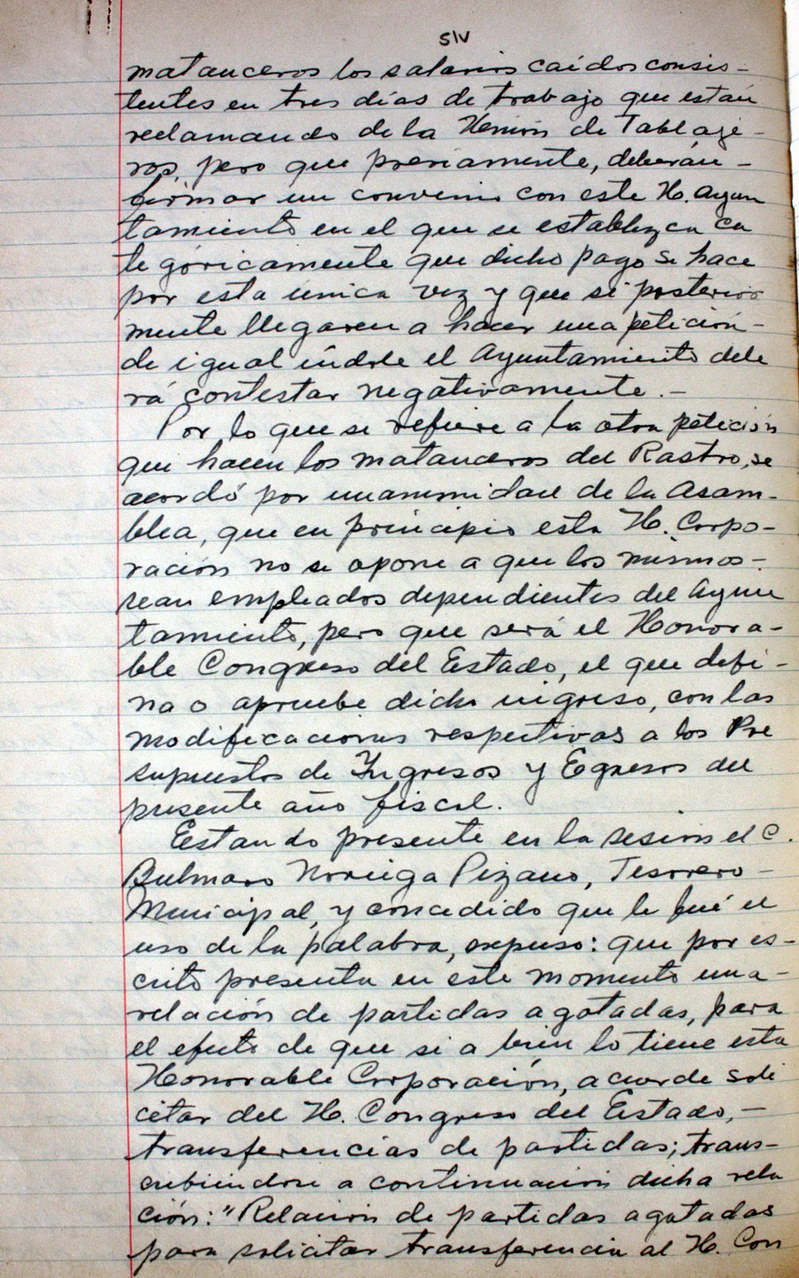 S/V
matanceros los salarios caídos consis-
tentes en tres días de trabajo que están
reclamando de la Unión de Tablaje-
ros, pero que previamente, deberán-
firmar un convenio con este H. Ayun
tamiento en el que se establezca ca
te góricamente que dicho pago se hace
por esta única vez y que si posterior
mente llegaren a hacer una petición-
de igual índole el Ayuntamiento debe
rá contestar negativamente.-
Por lo que se refiere a la otra petición
que hacen los matanceros del Rastro, se
acordó por unanimidad de la Asam-
blea, que en principio esta H. Corpo-
ración no se opone a que los mismos-
sean empleados dependientes del Ayun
tamiento, pero que será el Honora-
ble Congreso del Estado, el que defi-
na o apruebe dicho ingreso, con las
modificaciones respectivas a los Pre
supuestos de Ingresos y Egresos del
presente año fiscal.
Estando presente en la sesión el C.
Bulmaro Noriega Pizano, Tesorero-
Municipal, y concedido que le fué el
uso de la palabra, expuso: que por es-
crito presenta en este momento una-
relación de partidas agotadas, para
el efecto de que si a bien lo tiene esta
Honorable Corporación, acuerde soli
citar del H. Congreso del Estado,-
transferencias de partidas; trans-
cribiéndose a continuación dicha rela
ción: "Relación de partidas agotadas
para solicitar transferencia al H. Con